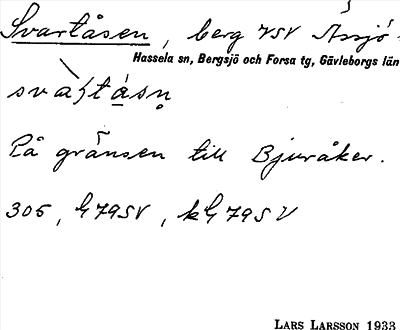 Svartåsen, berg VSV Åssjö-
Hassela sn, Bergsjö och Forsa tg, Gävleborgs län
På gränsen till Bjuråker.
305, G79SV, kG79SV
LARS LARSSON 1933